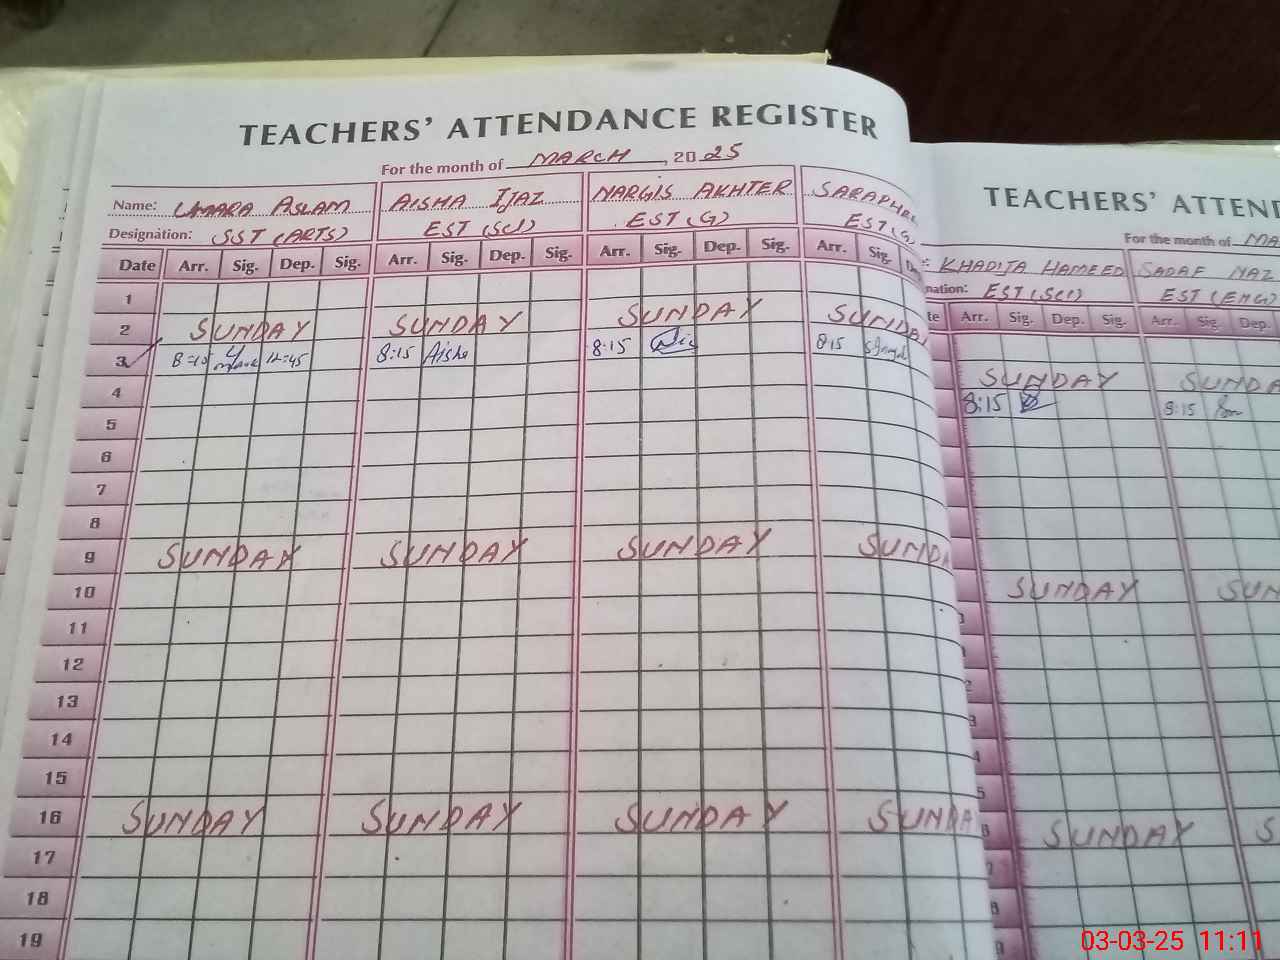 TEACHERS' ATTENDANCE REGISTER
For the month of MARCH, 2025
Name: UMARA ASLAM AISHA IJAZ NARGIS AKHTER
Designation: SST (ARTS) EST (SCI) EST (G) EST (G)
Date Arr. Sig. Dep. Sig. Arr. Sig. Dep. Sig. Arr. Sig. Dep. Sig. Arr. Sig.
1
2 SUNDAY SUNDAY SUNDAY SUNDAY
3 8:10 12:45 8:15 Aisha 8:15 8:15
4
5
6
7
8
9 SUNDAY SUNDAY SUNDAY SUNDA
10
11
12
13
14
15
16 SUNDAY SUNDAY SUNDAY SUNDA
17
18
19
TEACHERS' ATTEND
For the month of MA
KHADIJA HAMEED SADAF NAZ
nation: EST (SCI) EST (ENG)
te Arr. Sig. Dep. Sig. Arr. Sig. Dep.
SUNDAY SUNDA
8:15 8:15
SUNDAY SUN
SUNDAY S
03-03-25 11:11